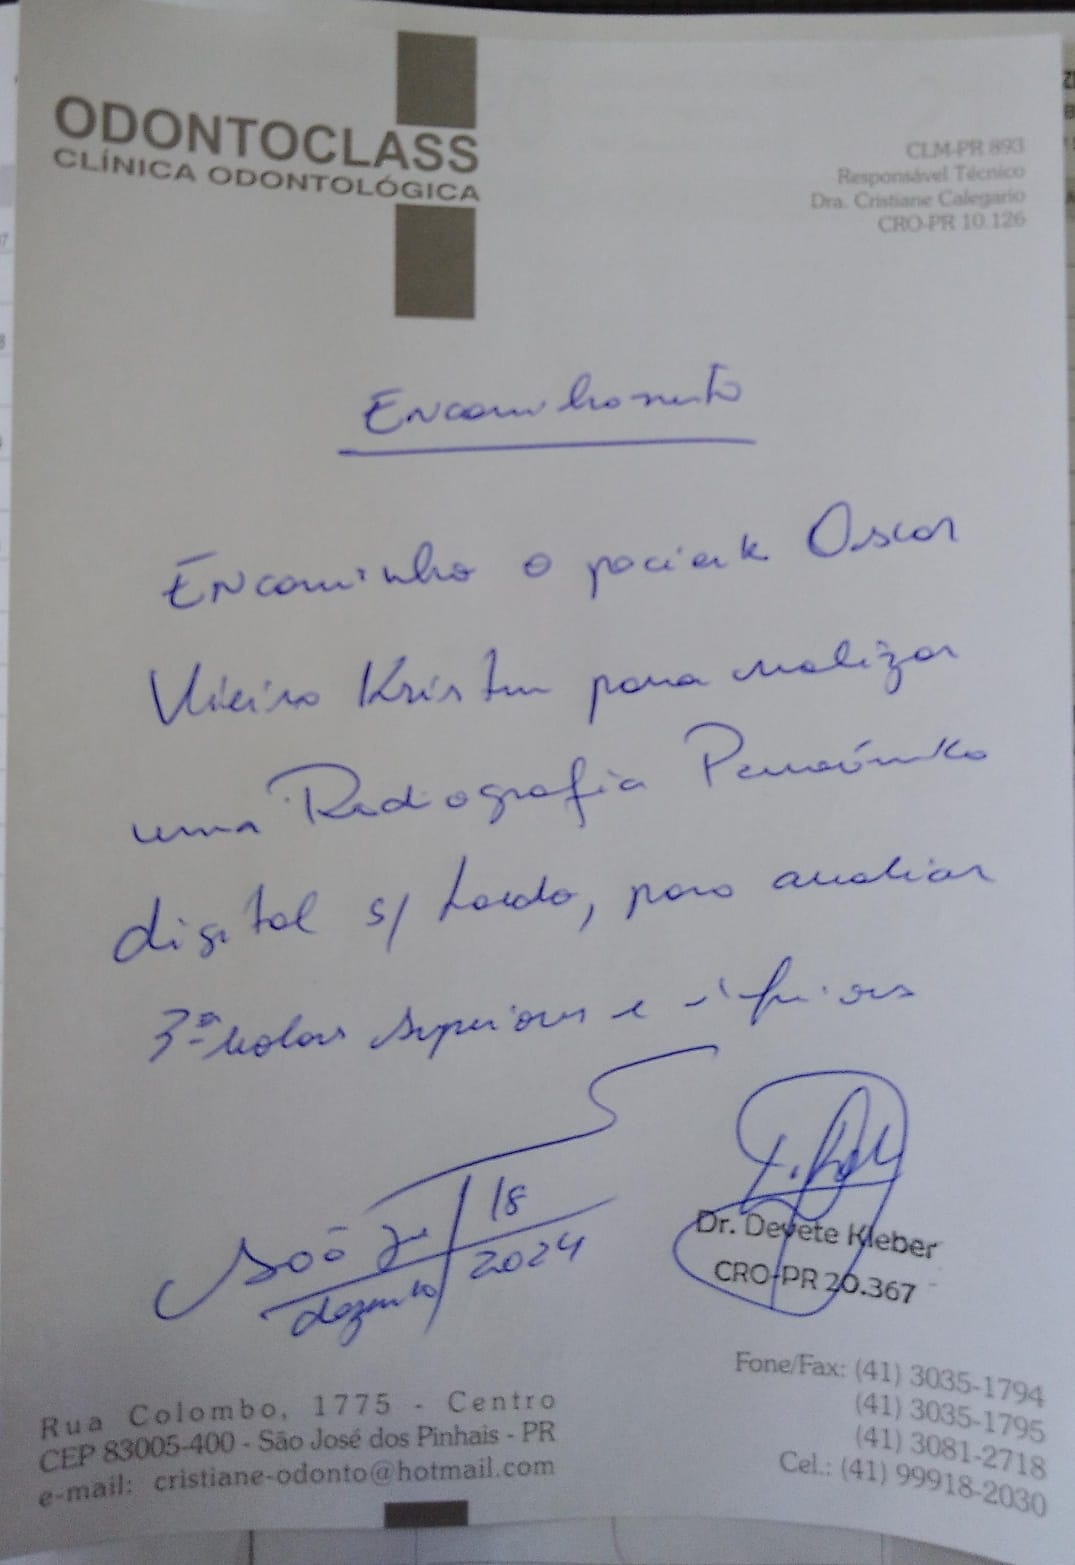 ODONTOCLASS
CLÍNICA ODONTOLÓGICA
CLM-PR 893
Responsável Técnico
Dra. Cristiane Calegario
CRO-PR 10.126
Encaminhamento
Encaminho o paciente Oscar
Vieira para realizar
uma Radiografia Panorâmica
digital s/ Laudo, para avaliar
3ºs Molares superiores e inferiores
São José 18
dezembro 2024
Dr. Deyete Kleber
CRO-PR 20.367
Rua Colombo, 1775 - Centro
CEP 83005-400 - São José dos Pinhais - PR
e-mail: cristiane-odonto@hotmail.com
Fone/Fax: (41) 3035-1794
(41) 3035-1795
(41) 3081-2718
Cel.: (41) 99918-2030